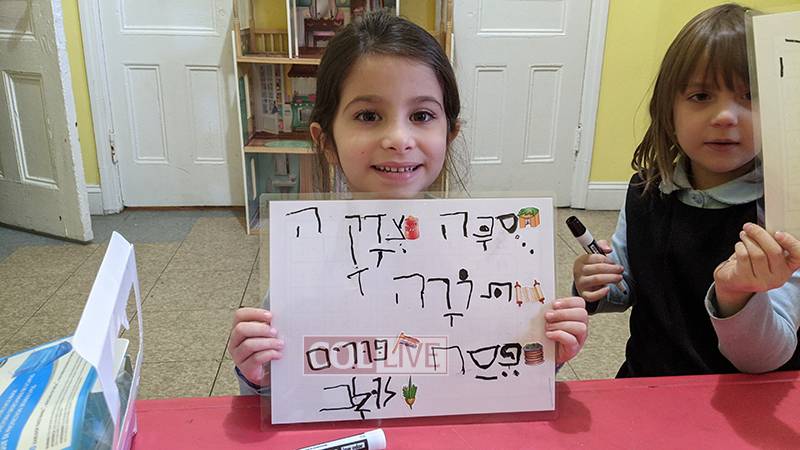 סֻכָּה צְדָקָה
תּוֹרָה
פֶּסַח פורים
לולב
COLLIVE